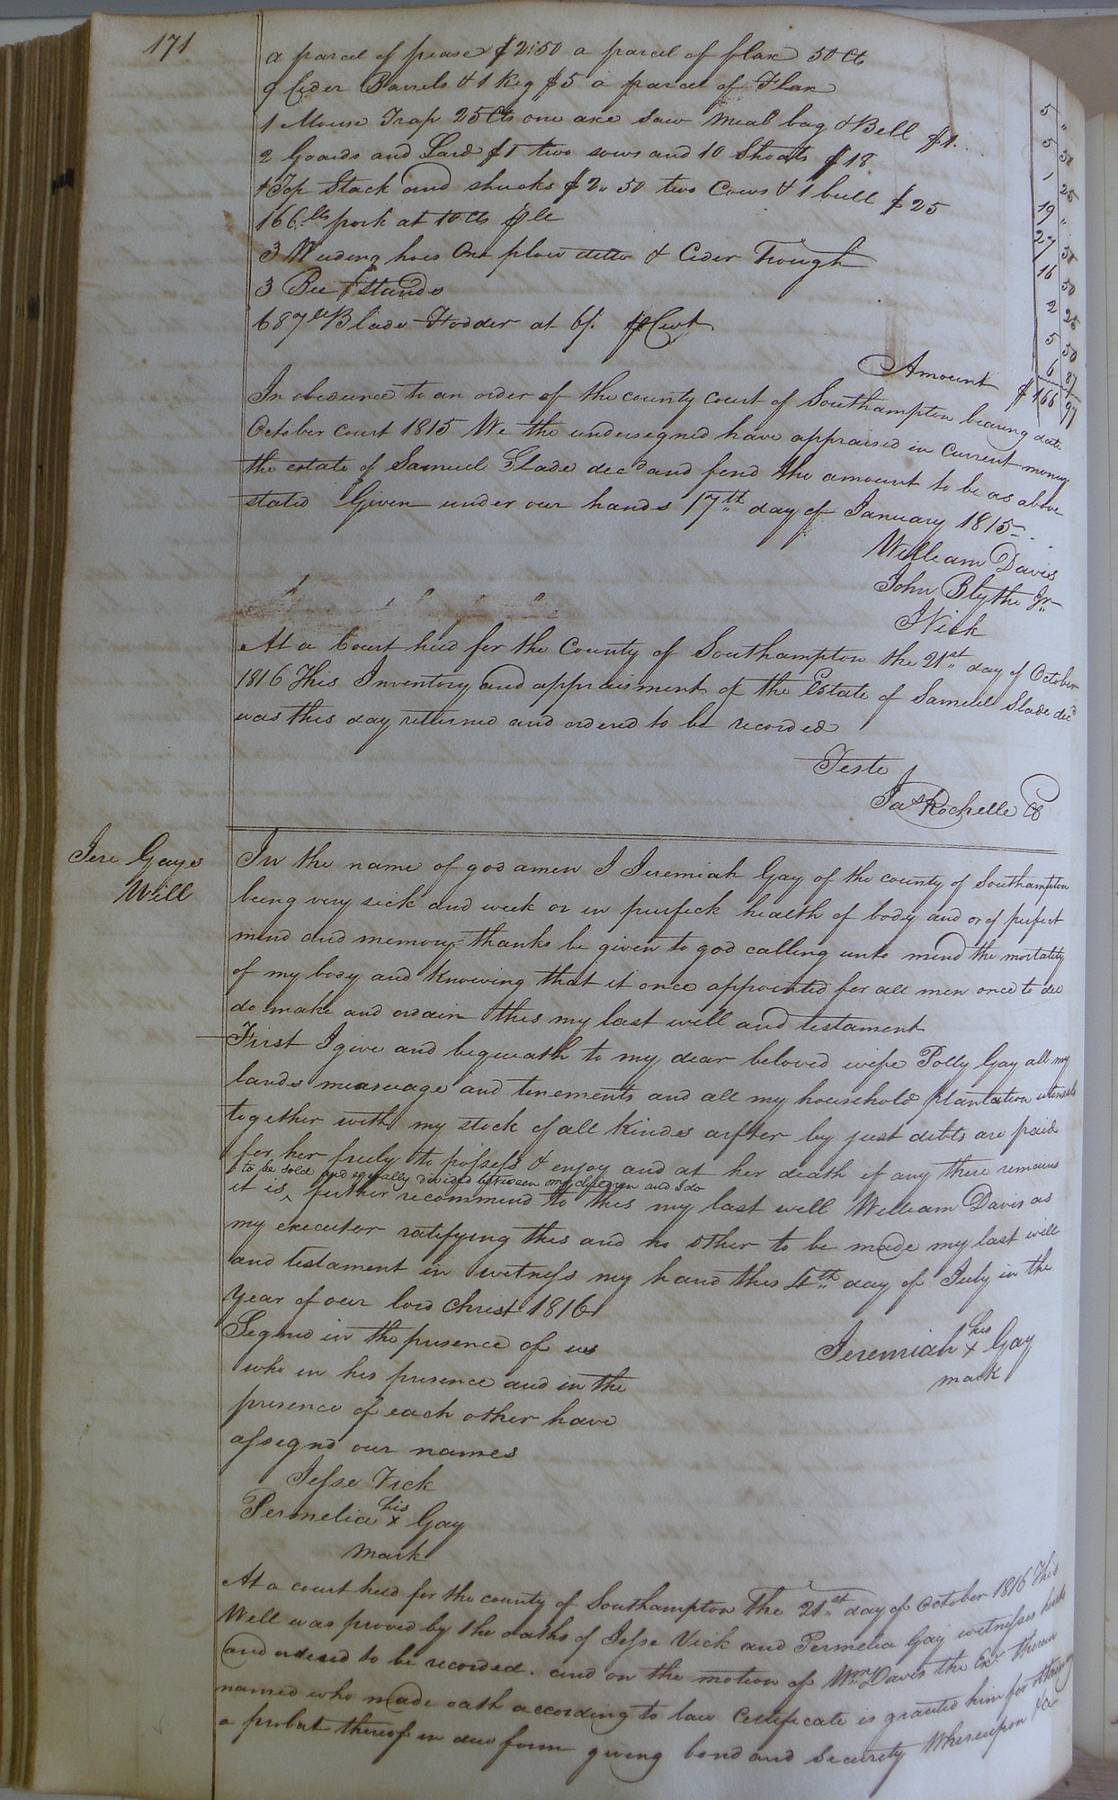 171
a parcel of pease $2:50 a parcel of flax 50 Cts
9 Cider Barrels & 1 Keg $5 a parcel of Flax
1 Mouse Trap 25 Cts one axe saw meal bag & Bell $1. 5 "
2 Goards and Lard $1 two sows and 10 Shoats $18 5 50
1 Top Stack and shucks $2.50 two Cows & 1 bull $25 1 25
166 lb pork at 10 cts 19 "
3 Weeding hoes One plow ditto & Cider Trough 27 50
3 Bee Stands 16 50
687 lb Blade Fodder at 6/. Cwt 2 25
5 50
6 87
Amount $166 97
In obedience to an order of the county court of Southampton bearing date
October court 1815 We the undersigned have appraised in Current money
the estate of Samuel Slade decd and fend the amount to be as above
stated Given under our hands 17th day of January 1815
William Davis
John Blythe Jr
J Vick
At a Court held for the County of Southampton the 21st day of October
1816 This Inventory and appraisment of the Estate of Samuel Slade decd
was this day returned and ordered to be recorded
Teste
Jas Rochelle CC
Jere Gays
Will
In the name of god amen I Jeremiah Gay of the county of Southampton
being very sick and week or in purfeck health of body and or of perfect
mind and memory thanks be given to god calling unto mind the mortality
of my body and knowing that it once appointed for all men once to die
do make and ordain this my last will and testament
First I give and bequeath to my dear beloved wife Polly Gay all my
lands messuage and tenements and all my household plantation utensels
together with my stock of all kindes arfter by just debts are paid
for her freely to possess & enjoy and at her death if any there remains
to be sold and equally divided between my children and I do
it is ^ further recommend to this my last will William Davis as
my executor ratifying this and no other to be made my last will
and testament in witness my hand this 4th day of July in the
year of our lord Christ 1816
Segned in the presence of us
who in his presence and in the
presence of each other have
assegnd our names
Jeremiah his x mark Gay
Jesse Vick
Permelia his x mark Gay
At a court held for the county of Southampton The 21st day of October 1816 This
Well was proved by the oaths of Jesse Vick and Permelia Gay witnesses hereto
and ordered to be recorded. and on the motion of Wm Davis the Exr therein
named who made oath according to law Certificate is granted him for obtaining
a probat thereof in due form giving bond and Security Whereupon &c